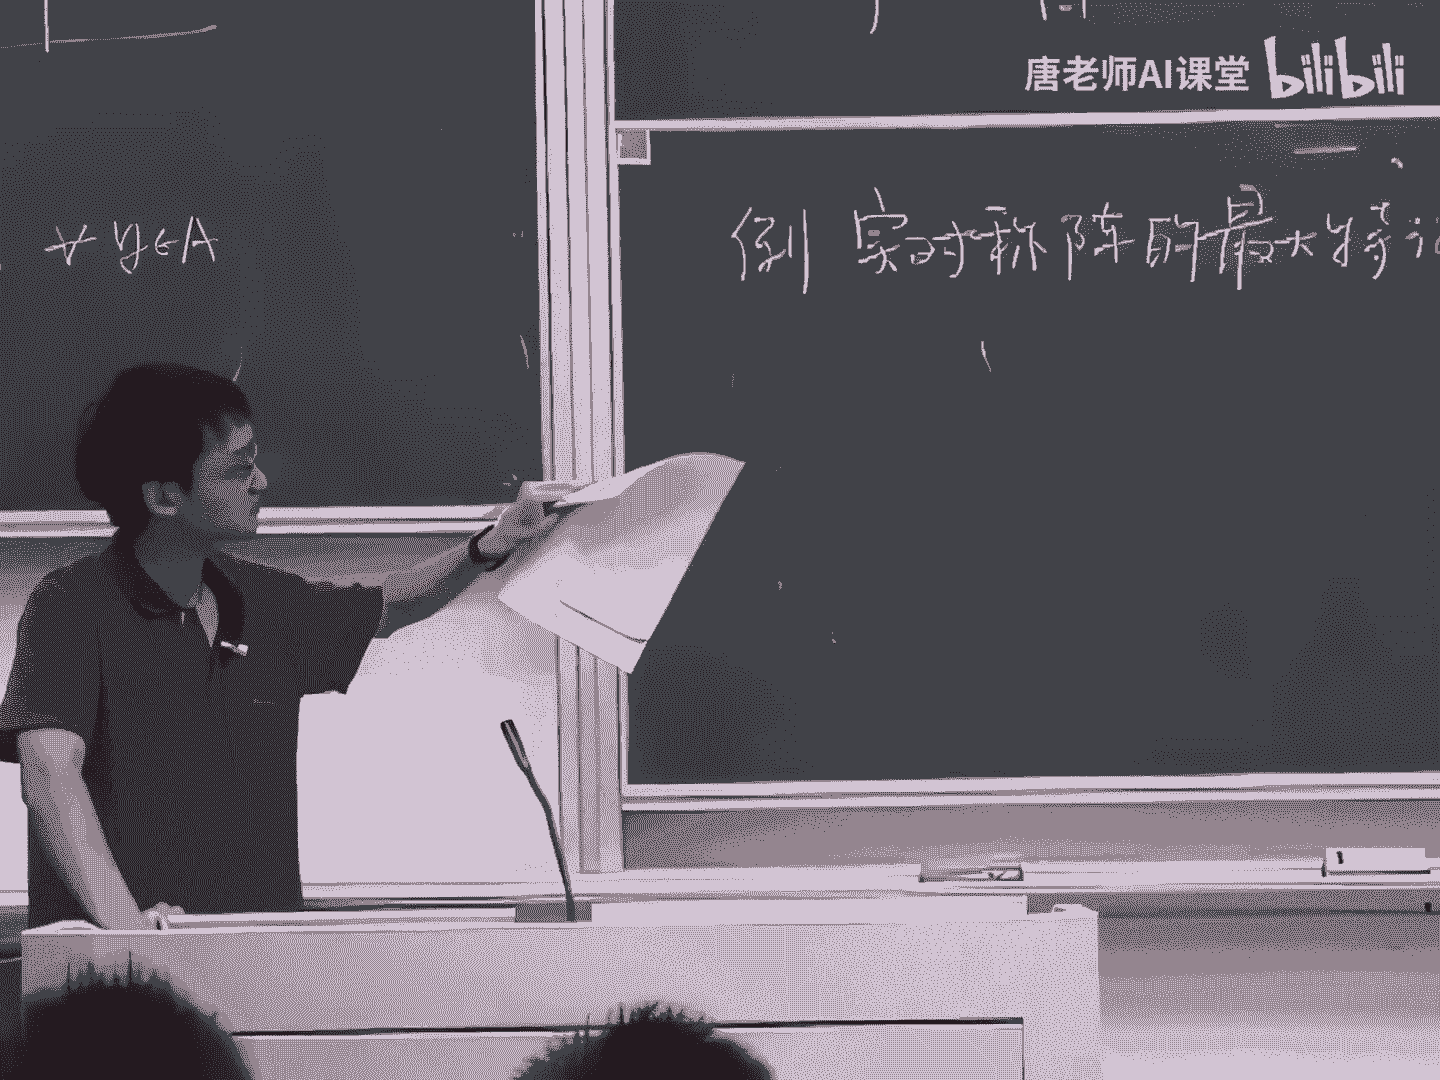 唐老师AI课堂 bilibili
∀ y∈A
例 实对称阵的最大特